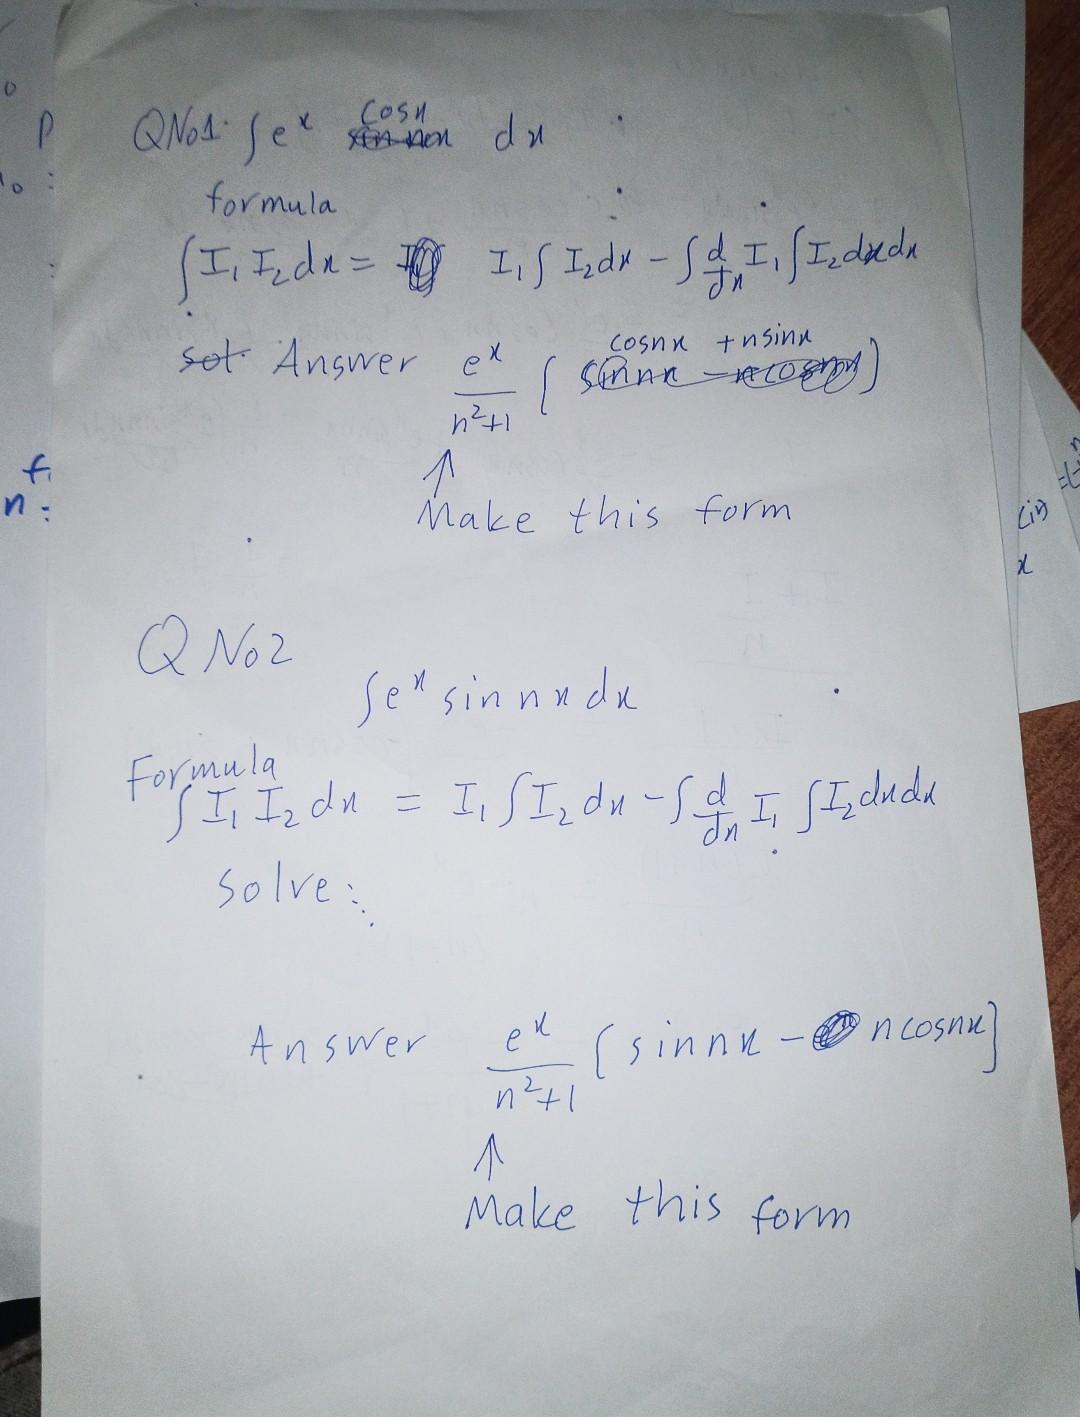 QNo1. ∫e^x cosx dx
formula
∫I₁ I₂ dx = I₁ ∫ I₂dx - ∫ d/dx I₁ ∫I₂dxdx
Answer e^x/n²+1 [cosnx + nsinx]
↑
Make this form
Q No2
∫e^x sin nx dx
Formula
∫ I₁ I₂ dx = I₁ ∫I₂ dx - ∫ d/dx I₁ ∫I₂dxdx
Solve:
Answer e^x/n²+1 [sinnx - ncosnx]
↑
Make this form
P
f
n :
(in)
x